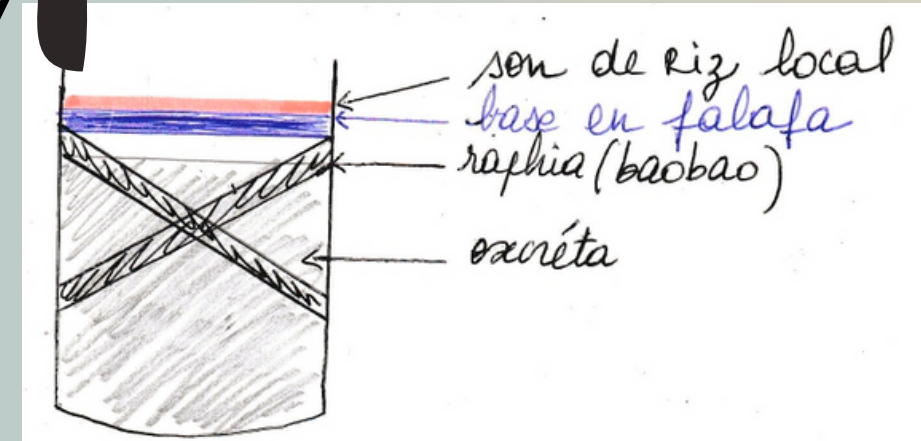 son de riz local
base en falafa
raphia (baobao)
excréta